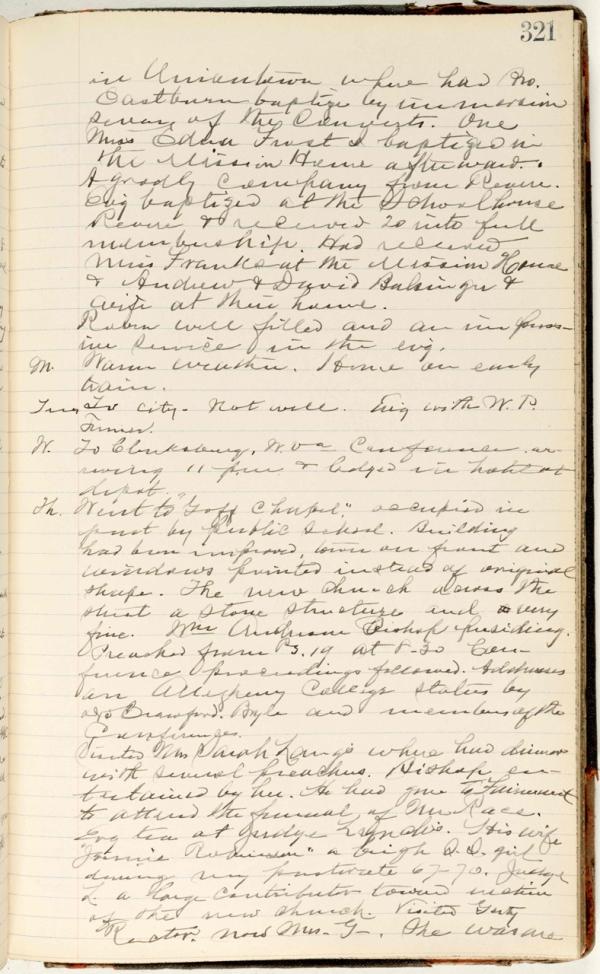 321
in Uniontown where had Bro.
Eastburn baptize by immersion
seven of the Converts. One
Miss Edna Frost I baptized in
the Mission Home afterward.
A goodly company from Revere.
Evg baptized at the Schoolhouse
Revere & received 20 into full
membership. Had received
Miss Franks at the Mission House
& Andrew & David Balsinger &
wife at their home.
Room well filled and an impress-
ive service in the evg.
M. Warm weather. Home on early
train.
Tues To city - Not well. Evg with W. P.
Turner.
W. To Clarksburg, W. Va Conference ar-
riving 11 pm & lodged in hotel at
depot.
Th. Went to "Goff Chapel," occupied in
part by public school. Building
had been improved, tower on front and
windows pointed instead of original
shape. The new church across the
street a stone structure and very
fine. Wm Anderson Bishop presiding.
Preached from Ps. 19 at 8-30 Con-
ference proceedings followed. Addresses
on Allegheny College status by
Crawford. and members of the
Conference.
Visited Mrs Sarah where had dinner
with several preachers. Bishop en-
tertained by her. He had gone to Fairmont
to attend the funeral of Mr Race.
Evg tea at Judge His wife
"Jennie Robinson" a bright S. S. girl
during my pastorate 67-70. Judge
L. a large contributor toward erection
of the new church. Visited Gerty
Rector, now Mrs. G-. She was one